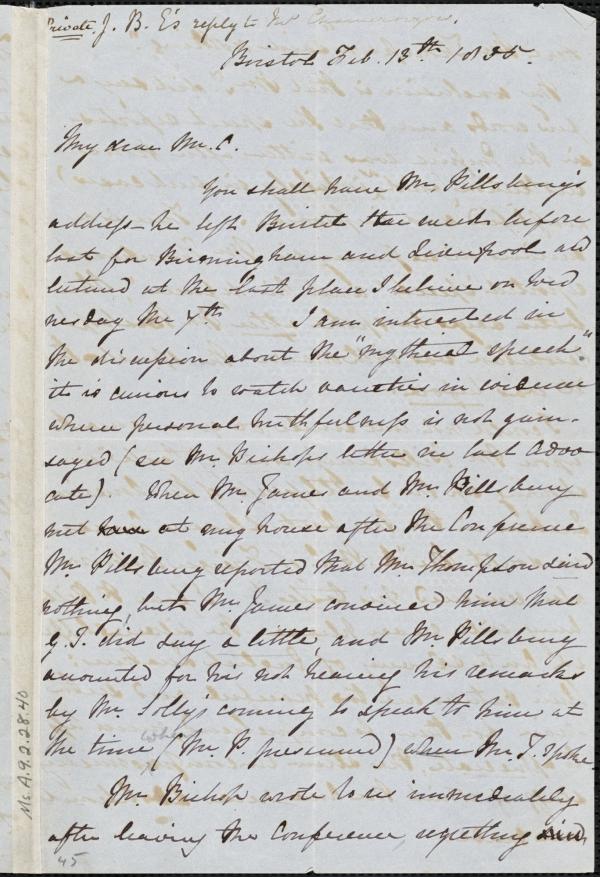 Private. J. B. E's reply to Mr Chamerovzow.
Bristol Feb. 13th 1855.
My dear Mr. C.
You shall have Mr. Pillsbury's
address – he left Bristol the week before
last for Birmingham and Liverpool and
lectured at the last place I believe on Wed
nesday the 7th. I am interested in
the discussion about the "mythical speech".
it is curious to watch varieties in evidence
where personal truthfulness is not gain-
sayed (see Mr. Bishops letter in last Advo
cate). When Mr. James and Mr. Pillsbury
met at my house after the Conference
Mr. Pillsbury reported that Mr. Thompson said
nothing, but Mr. James convinced him that
G. T. did say a little, and Mr. Pillsbury
accounted for his not hearing his remarks
by Mr. Solly's coming to speak to him at
the time (Mr. P. presumed) when Mr. T. spoke.
Mr. Bishop wrote to us immediately
after leaving the Conference, regretting
Ms. A. 9. 2. 28. 40
45